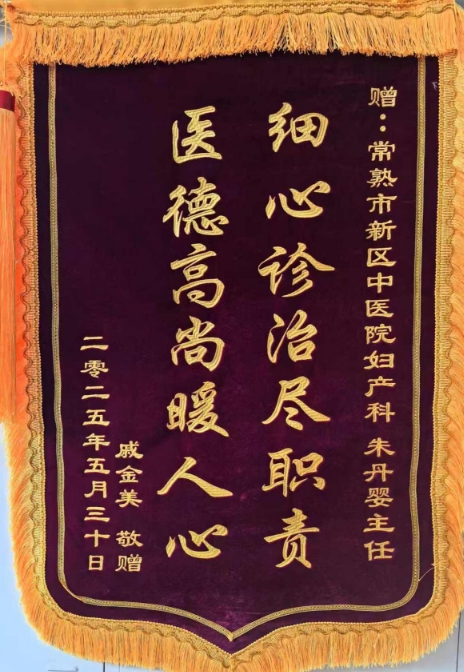 赠：常熟市新区中医院妇产科 朱丹婴主任
细心诊治尽职责
医德高尚暖人心
戚金美 敬赠
二零二五年五月三十日